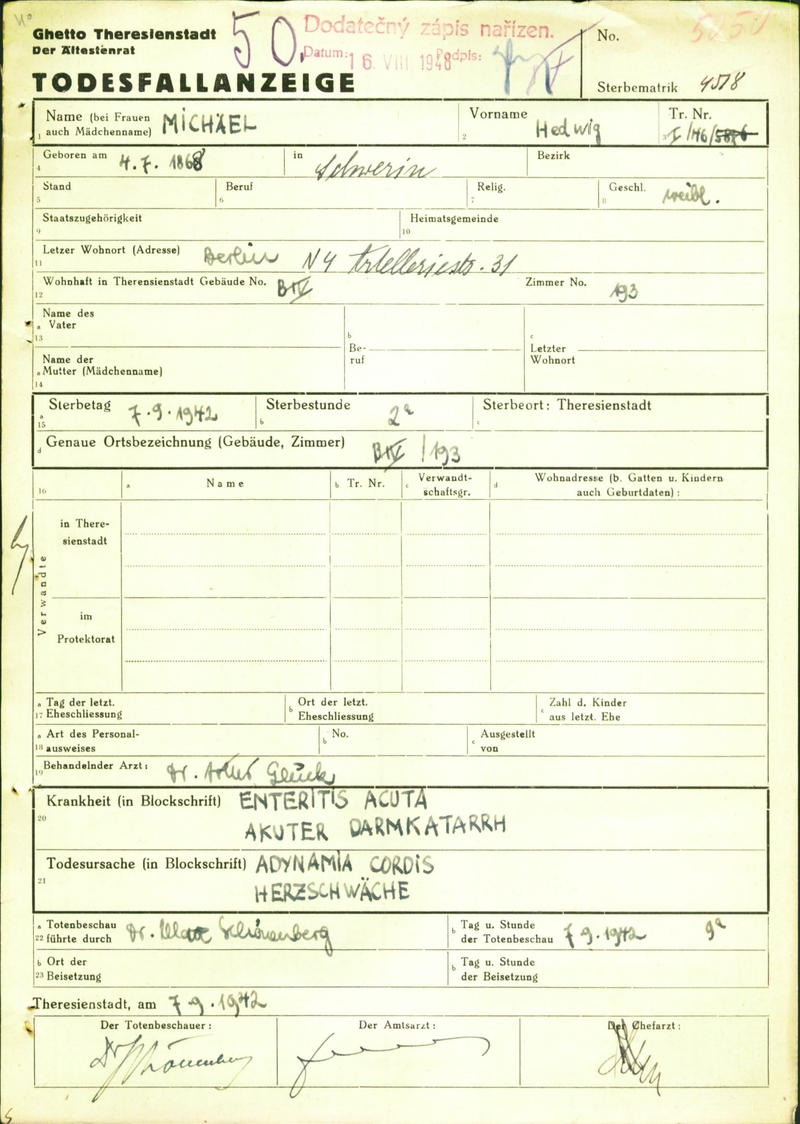 Ghetto Theresienstadt
Der Ältestenrat
TODESFALLANZEIGE
50
Dodatečný zápis nařízen.
Datum: 16. VIII 1948 Podpis:
No. 5050
Sterbematrik 4518
Name (bei Frauen auch Mädchenname) MICHAEL
1
Vorname Hedwig
2
Tr. Nr. I/46/
3
Geboren am 4.7.1868
4
in Schwerin
Bezirk
Stand
5
Beruf
6
Relig.
7
Geschl. weibl.
8
Staatszugehörigkeit
9
Heimatsgemeinde
10
Letzer Wohnort (Adresse) Berlin N4 Artilleriestr. 31
11
Wohnhaft in Theresienstadt Gebäude No. BIV
12
Zimmer No. 193
Name des
a Vater
13
b
Be-
ruf
c
Letzter
Wohnort
Name der
a Mutter (Mädchenname)
14
Sterbetag 7.9.1942
a
15
Sterbestunde 2a
b
Sterbeort: Theresienstadt
c
d Genaue Ortsbezeichnung (Gebäude, Zimmer) BIV/193
16
a Name
b Tr. Nr.
c Verwandt-
schaftsgr.
d Wohnadresse (b. Gatten u. Kindern
auch Geburtdaten):
Verwandte
in There-
sienstadt
im
Protektorat
a Tag der letzt.
17 Eheschliessung
b Ort der letzt.
Eheschliessung
c Zahl d. Kinder
aus letzt. Ehe
a Art des Personal-
18 ausweises
b No.
c Ausgestellt
von
Behandelnder Arzt: Dr. Artur Glück
19
Krankheit (in Blockschrift) ENTERITIS ACUTA
20
AKUTER DARMKATARRH
Todesursache (in Blockschrift) ADYNAMIA CORDIS
21
HERZSCHWÄCHE
a Totenbeschau
22 führte durch Dr. Schönenberg
b Tag u. Stunde
der Totenbeschau 7.9.1942 9a
b Ort der
23 Beisetzung
b Tag u. Stunde
der Beisetzung
Theresienstadt, am 7.9.1942
Der Totenbeschauer:
Der Amtsarzt:
Der Chefarzt:
Dr Schönenberg